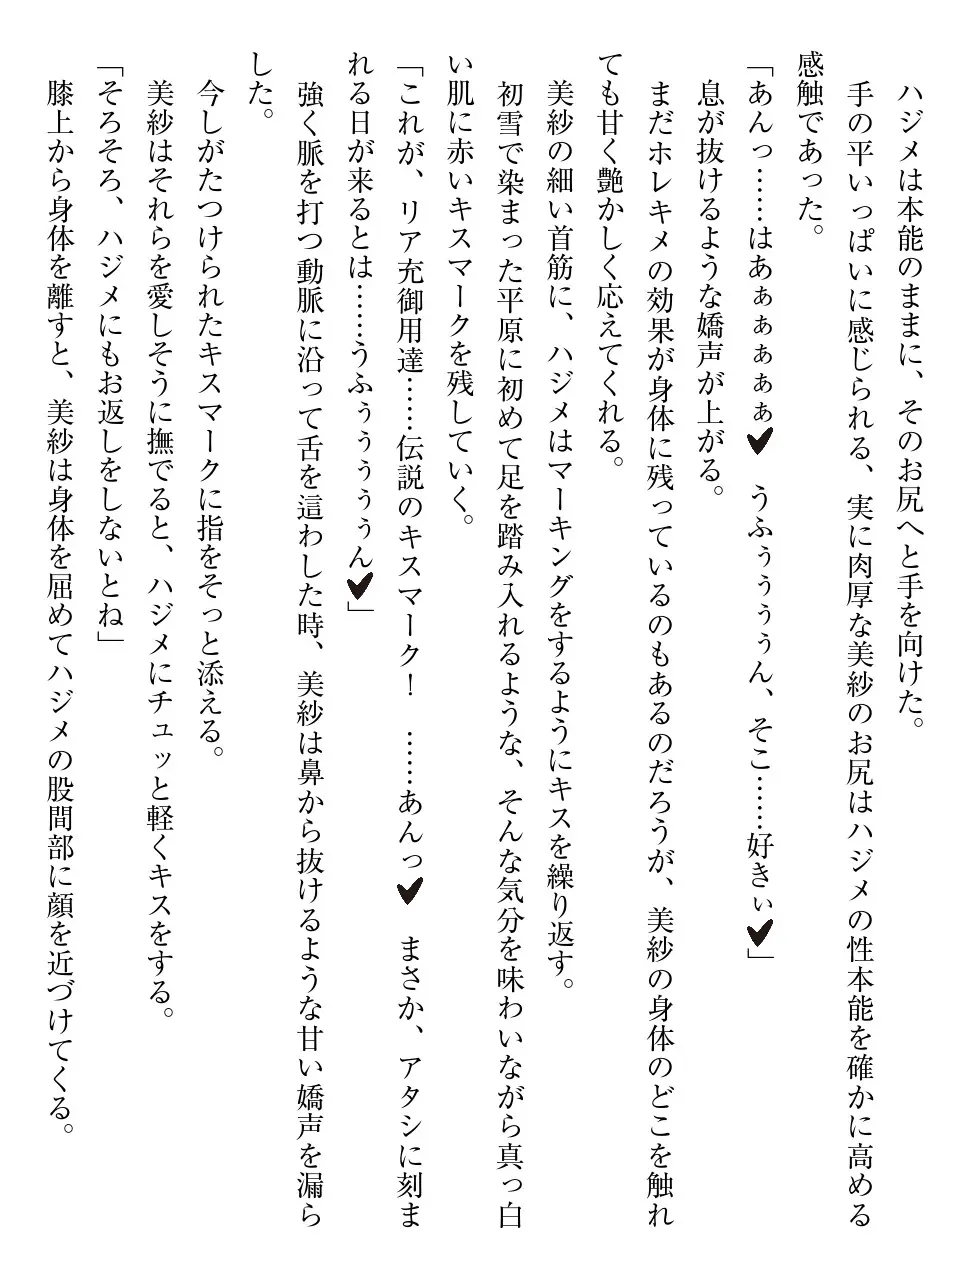 ハジメは本能のままに、そのお尻へと手を向けた。
手の平いっぱいに感じられる、実に肉厚な美紗のお尻はハジメの性本能を確かに高める
感触であった。
「あんっ……はあぁぁぁぁ♥　うふぅぅぅぅん、そこ……好きぃ♥」
息が抜けるような嬌声が上がる。
まだホレキメの効果が身体に残っているのもあるのだろうが、美紗の身体のどこを触れ
ても甘く艶かしく応えてくれる。
美紗の細い首筋に、ハジメはマーキングをするようにキスを繰り返す。
初雪で染まった平原に初めて足を踏み入れるような、そんな気分を味わいながら真っ白
い肌に赤いキスマークを残していく。
「これが、リア充御用達……伝説のキスマーク！　……あんっ♥　まさか、アタシに刻ま
れる日が来るとは……うふぅぅぅぅん♥」
強く脈を打つ動脈に沿って舌を這わした時、美紗は鼻から抜けるような甘い嬌声を漏ら
した。
今しがたつけられたキスマークに指をそっと添える。
美紗はそれらを愛しそうに撫でると、ハジメにチュッと軽くキスをする。
「そろそろ、ハジメにもお返しをしないとね」
膝上から身体を離すと、美紗は身体を屈めてハジメの股間部に顔を近づけてくる。